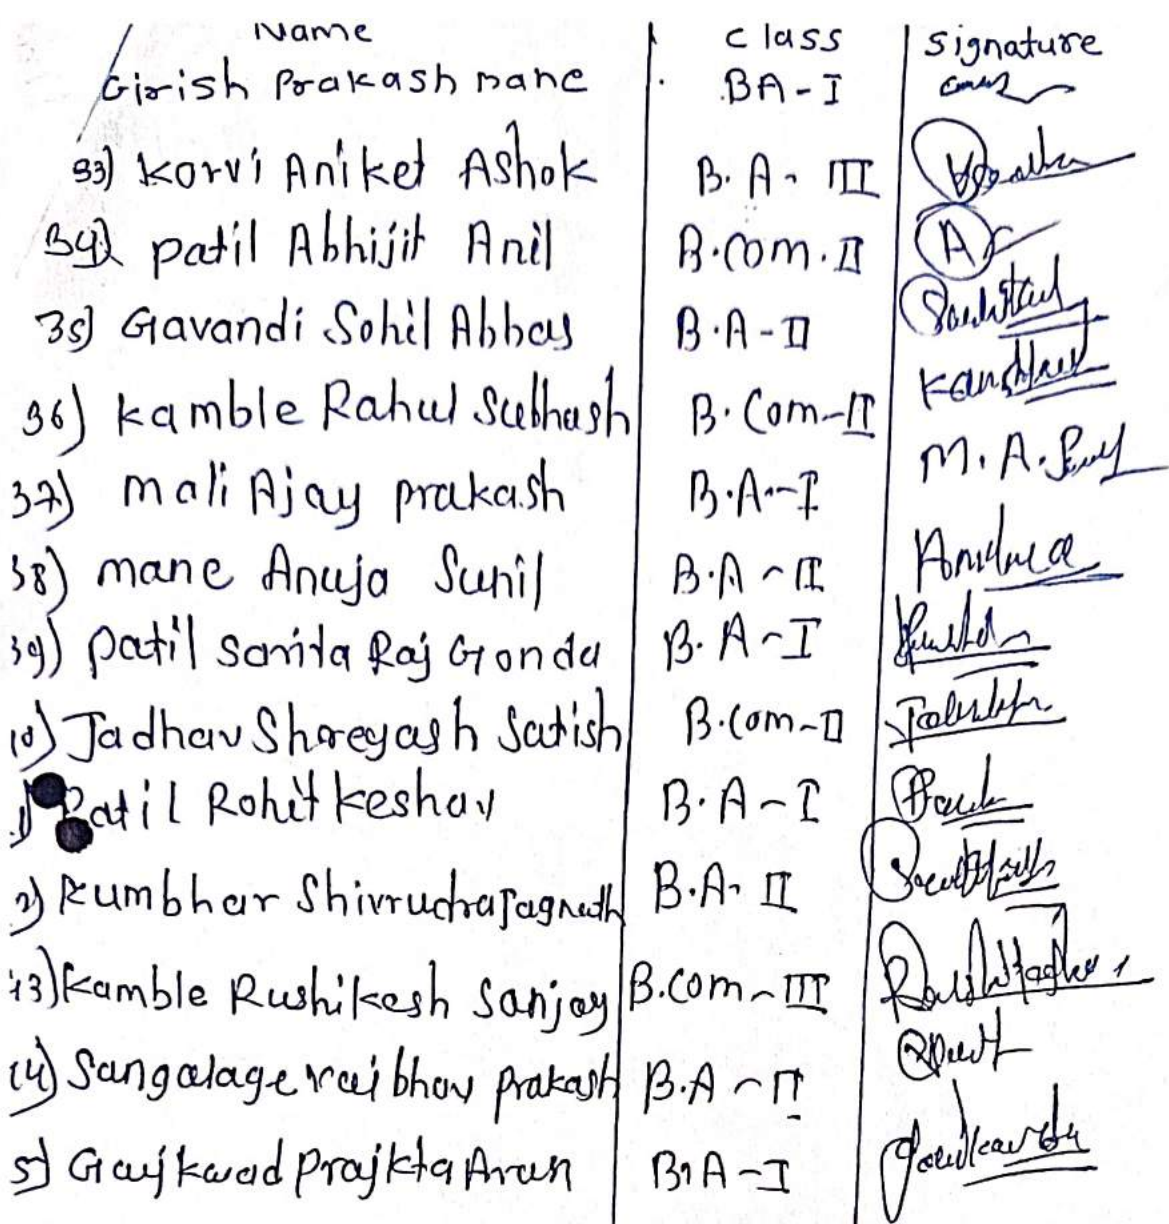 Name class signature
Girish Prakash mane BA-I
33) Korvi Aniket Ashok B.A. III
34) patil Abhijit Anil B.com.II A
35) Gavandi Sohil Abbas B.A-II
36) kamble Rahul Subhash B.Com-II
37) mali Ajay prakash B.A-I M.A.
38) mane Anuja Sunil B.A-II
39) patil Sarita Raj Gonda B.A-I
10) Jadhav Shreyash Satish B.com-II
1) Patil Rohit keshav B.A-I
2) Kumbhar Shivrudra Jagnath B.A. II
13) Kamble Rushikesh Sanjay B.com-III
14) Sangalage vaibhav prakash B.A-II
5) Gaykwad Prajkta Arun B.A-I